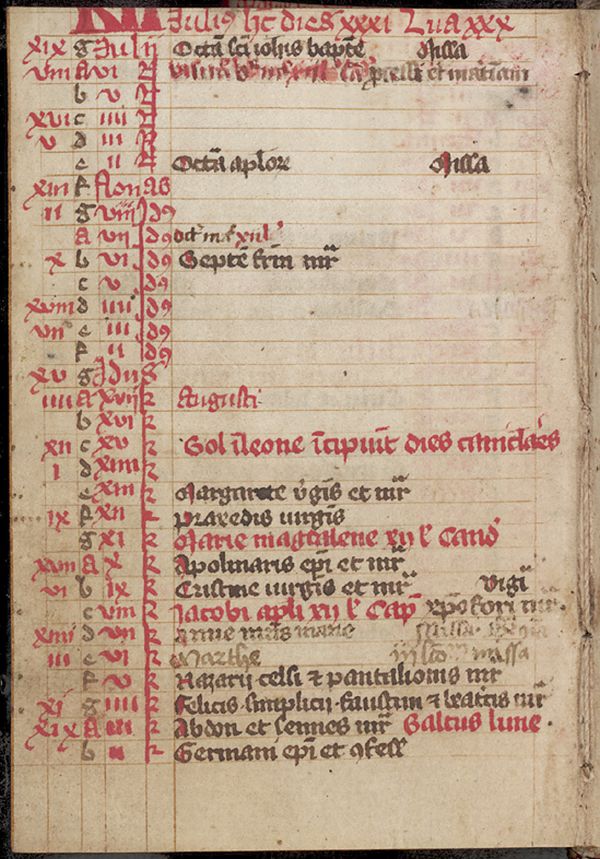 KL Julius hc dies xxxi Lua xxx
xix g Julii Octā sci iohis bapte Missa
viii A vi et
b v
xvi c iiii
v d iii
e ii Octā aplor Missa
xiii f Nonas
ii g viii Id9
A vii Id9
x b vi Id9 Septē frm mr
c v Id9
xviii d iiii Id9
vii e iii Id9
f ii Id9
xv g Idus
iiii A xvii k Augusti
b xvi k
xii c xv k Sol i leone icipiut dies caniclares
i d xiiii k
e xiii k Margarete vgis et mr
ix f xii k praxedis uirgis
g xi k Marie magdalene xii l Cand
xvii A x k Apolinaris epi et mr
vi b ix k Cristine uirgis et mr vigi
c viii k Jacobi apli xii l Cap xpofori mr
xiiii d vii k Anne mris marie missa
iii e vi k Marthe iii lco missa
f v k Nazarii celsi et pantalionis mr
xi g iiii k felicis simplicii faustini et beatcis mr
xix A iii k Abdon et sennes mr Saltus lune
b ii k Germani epi et 9fess